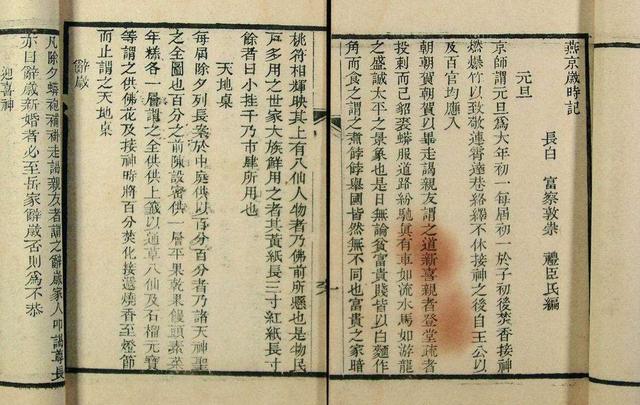 燕京歲時記
長白　富察敦崇　禮臣氏編
元旦
京師謂元旦爲大年初一每屆初一於子初後焚香接神
燃爆竹以致敬連霄達巷絡繹不休接神之後自王公以
及百官均應入
朝朝賀朝賀以畢走謁親友謂之道新喜親者登堂疏者
投刺而已貂裘蟒服道路紛馳真有車如流水馬如游龍
之盛誠太平之景象也是日無論貧富貴賤皆以白麵作
角而食之謂之煮餑餑舉國皆然無不同也富貴之家暗
桃符相輝映其上有八仙人物者乃佛前所懸也是物民
戶多用之世家大族鮮用之者其黃紙長三寸紅紙長寸
餘者曰小挂千乃市肆所用也
天地桌
每屆除夕列長案於中庭供以百分百分者乃諸天神聖
之全圖也百分之前陳設蜜供一層苹果乾果饅頭素菜
年糕各一層謂之全供供上籤以通草八仙及石榴元寶
等謂之供佛花及接神時將百分焚化接遞燒香至燈節
而止謂之天地桌
辭歲
凡除夕蟒袍補褂走謁親友者謂之辭歲家人叩謁尊長
亦曰辭歲新婚者必至岳家辭歲否則爲不恭
迎喜神